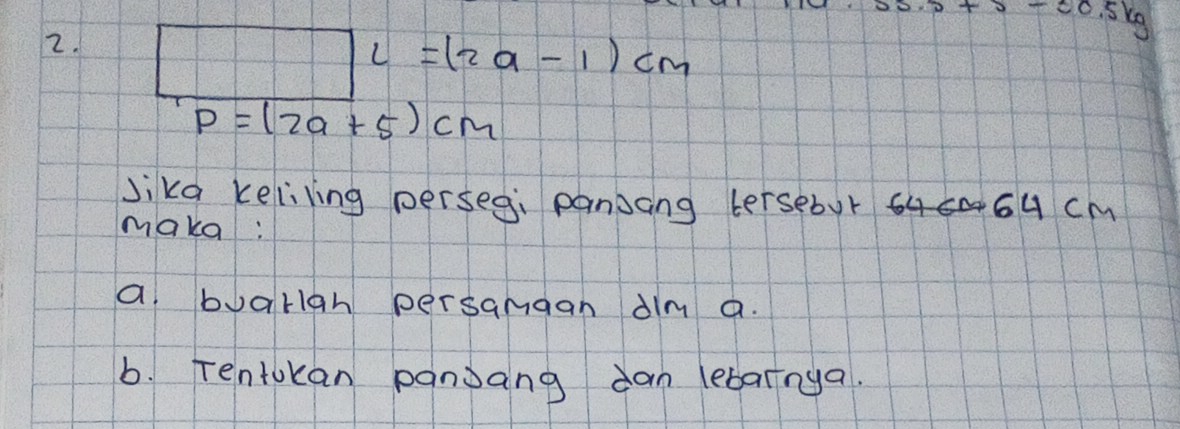 55.5 + 5 = 60.5kg
2. L = (2a - 1) cm
P = (2a + 5) cm
Jika keliling persegi panjang tersebut 64 cm 64 cm
maka :
a. buatlah persamaan dlm a.
b. Tentukan panjang dan lebarnya.